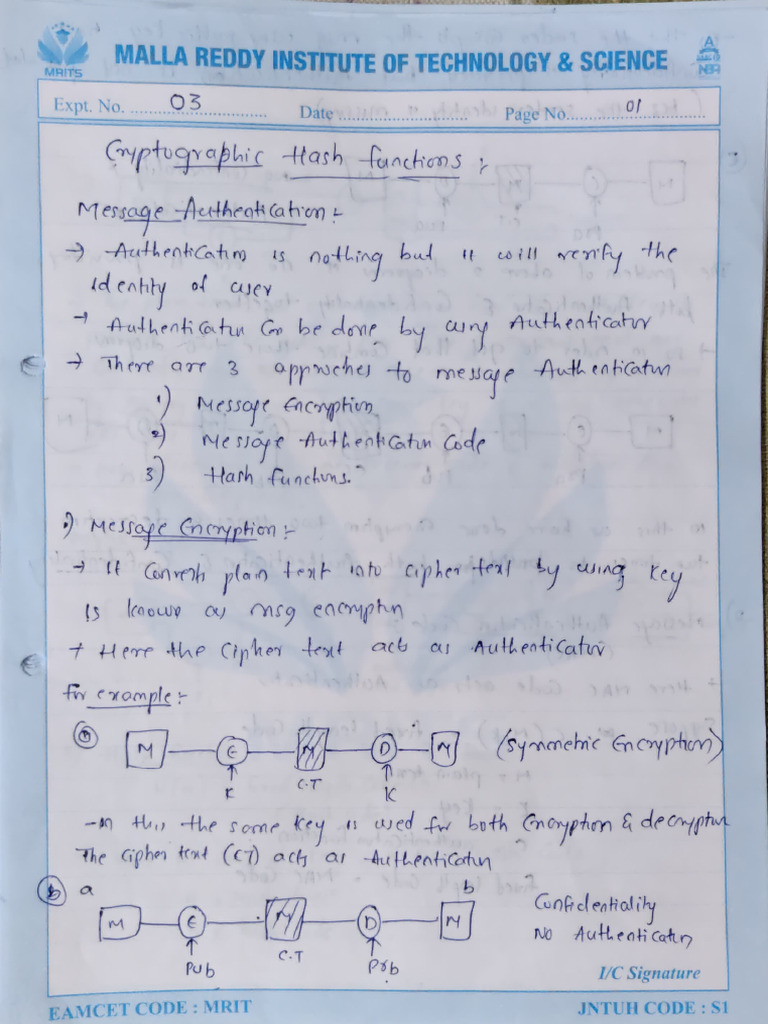 MRITS
MALLA REDDY INSTITUTE OF TECHNOLOGY & SCIENCE
Expt. No. 03 Date Page No. 01
Cryptographic Hash functions :-
Message Authentication :-
→ Authentication is nothing but it will verify the
identity of user
→ Authentication Can be done by using Authenticator
→ There are 3 approches to message Authentication
1) Message Encryption
2) Message Authentication Code
3) Hash Functions.
1) Message Encryption :-
→ It Converts plain text into cipher text by using key
is known as msg encryption
→ Here the Cipher text acts as Authenticator
for example :-
a M E M D M (Symmetric Encryption)
K C.T K
-In this the same key is used for both Encryption & decryption
The cipher text (CT) acts as Authentication
b a b
M E M D M Confidentiality
Pub C.T Prb No Authentication
I/C Signature
EAMCET CODE : MRIT JNTUH CODE : S1